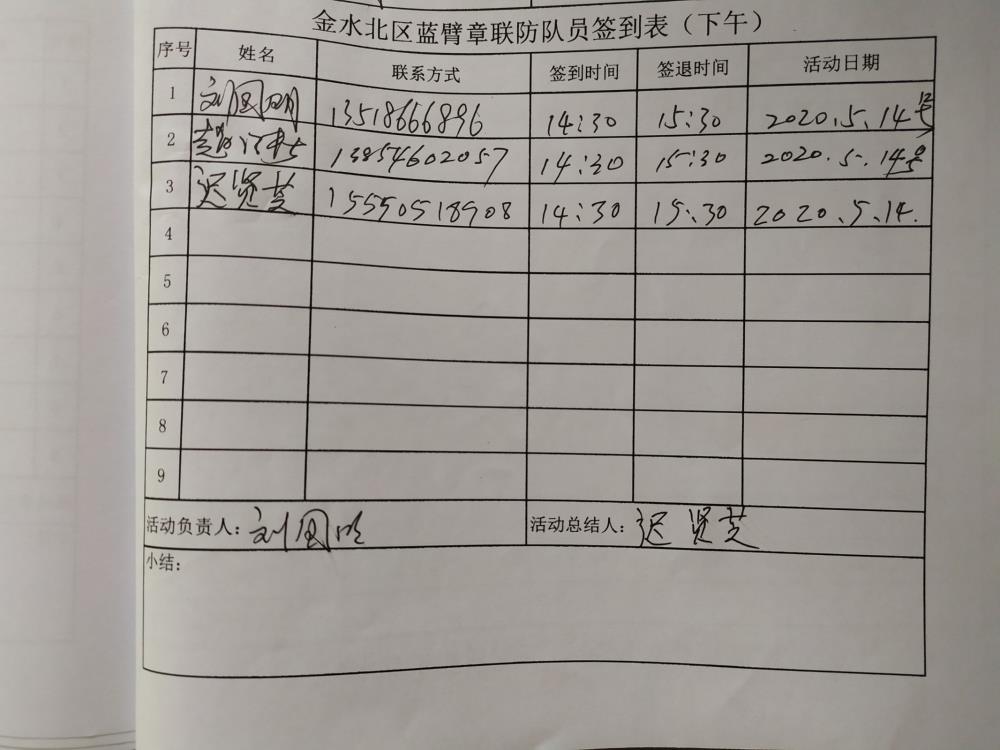 金水北区蓝臂章联防队员签到表（下午）
序号 姓名 联系方式 签到时间 签退时间 活动日期
1 刘国明 13518666896 14:30 15:30 2020.5.14号
2 赵 13854602057 14:30 15:30 2020.5.14号
3 迟贤芝 15550518908 14:30 15:30 2020.5.14.
4
5
6
7
8
9
活动负责人：刘国明 活动总结人：迟贤芝
小结：